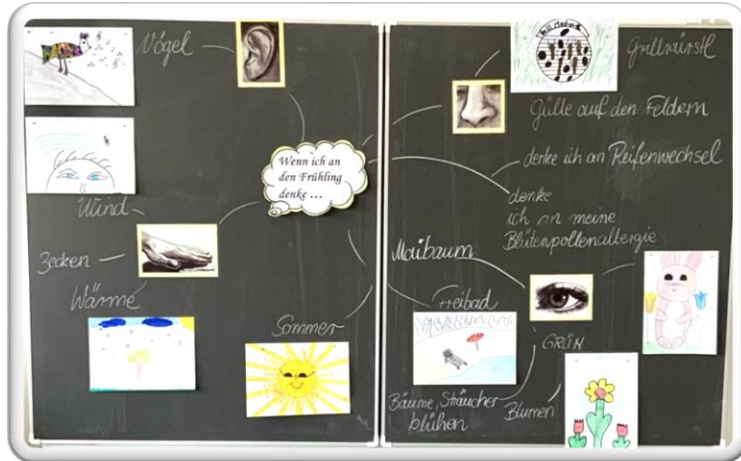 Vögel
Wenn ich an
den Frühling
denke ...
Wind
Zecken
Wärme
Sommer
Grillwürstl
Gülle auf den Feldern
denke ich an Reifenwechsel
denke
ich an meine
Blütenpollenallergie
Maibaum
Freibad
GRÜN
Bäume, Sträucher
blühen
Blumen